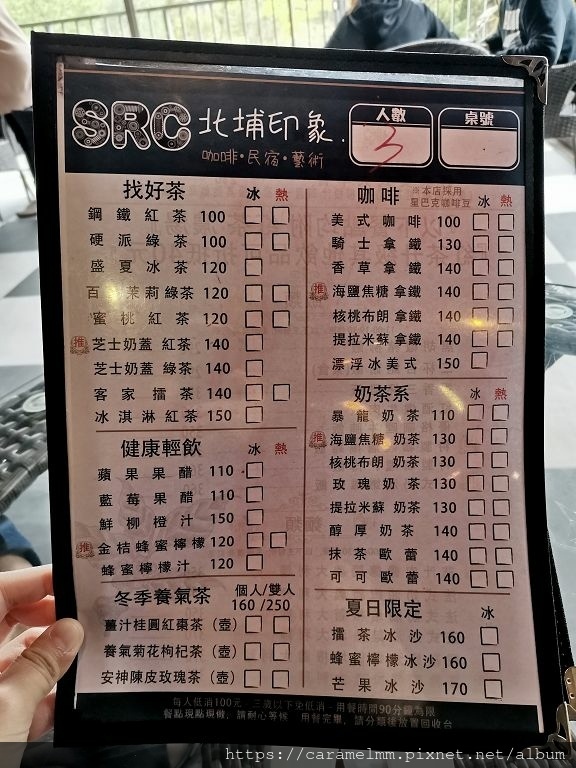 SRC 北埔印象.
咖啡·民宿·藝術
人數
3
桌號
找好茶 冰 熱
鋼鐵紅茶 100
硬派綠茶 100
盛夏冰茶 120
百 茉莉綠茶 120
蜜桃紅茶 120
推 芝士奶蓋 紅茶 140
芝士奶蓋 綠茶 140
客家擂茶 140
冰淇淋紅茶 150
健康輕飲 冰 熱
蘋果果醋 110
藍莓果醋 110
鮮柳橙汁 150
推 金桔蜂蜜檸檬 120
蜂蜜檸檬汁 120
冬季養氣茶 個人/雙人
160 /250
薑汁桂圓紅棗茶(壺)
養氣菊花枸杞茶(壺)
安神陳皮玫瑰茶(壺)
咖啡 ※本店採用
星巴克咖啡豆 冰 熱
美式咖啡 100
騎士拿鐵 130
香草拿鐵 140
推 海鹽焦糖 拿鐵 140
核桃布朗 拿鐵 140
提拉米蘇 拿鐵 140
漂浮冰美式 150
奶茶系 冰 熱
暴龍奶茶 110
推 海鹽焦糖 奶茶 130
核桃布朗 奶茶 130
玫瑰奶茶 130
提拉米蘇 奶茶 130
醇厚奶茶 140
抹茶歐蕾 140
可可歐蕾 140
夏日限定 冰
擂茶冰沙 160
蜂蜜檸檬冰沙 160
芒果冰沙 170
每人低消100元 三歲以下免低消·用餐時間90分鐘為限
餐點現點現做,請耐心等候 用餐完畢,請分類後放置回收台
https://caramelmm.pixnet.net/album